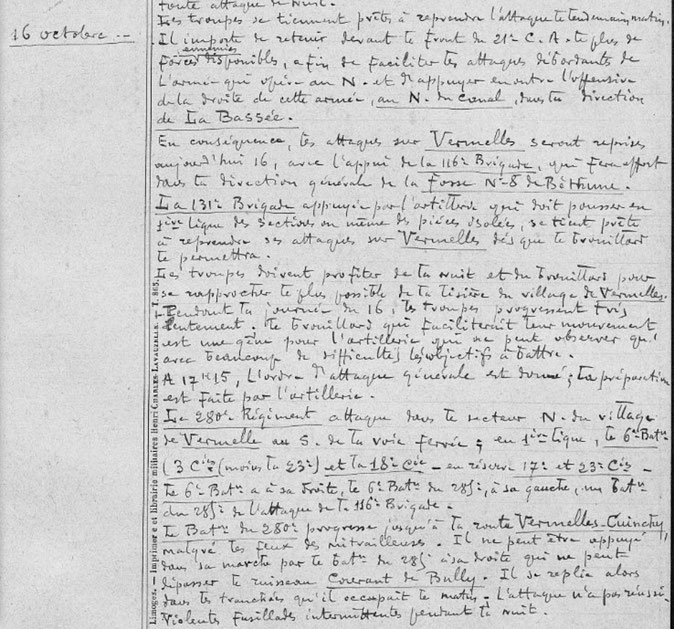 toute attaque de nuit.
Les troupes se tiennent prêtes à reprendre l'attaque le lendemain matin.
16 octobre
Il importe de retenir devant le front du 21e C.A. le plus de
forces ennemies disponibles, afin de faciliter les attaques débordantes de
l'armée qui opère au N. et d'appuyer en outre l'offensive
de la droite de cette armée, au N. du canal, dans la direction
de La Bassée.
En conséquence, les attaques sur Vermelles seront reprises
aujourd'hui 16, avec l'appui de la 116e Brigade, qui fera effort
dans la direction générale de la fosse No 8 de Béthune.
La 131e Brigade appuyée par l'artillerie qui doit pousser en
1ère ligne des sections ou même des pièces isolées, se tient prête
à reprendre ses attaques sur Vermelles dès que le brouillard
le permettra.
Les troupes doivent profiter de la nuit et du brouillard pour
se rapprocher le plus possible de la lisière du village de Vermelles.
Pendant la journée du 16, les troupes progressent très
lentement. Le brouillard qui faciliterait leur mouvement
est une gêne pour l'artillerie qui ne peut observer qu'
avec beaucoup de difficultés les objectifs à battre.
A 17h15, l'ordre d'attaque générale est donné ; la préparation
est faite par l'artillerie.
Le 280e Régiment attaque dans le secteur N. du village
de Vermelle au S. de la voie ferrée ; en 1ère ligne, le 6e Batn
(3 Cies (moins la 23e) et la 18e Cie - en réserve 17e et 23e Cies -
le 6e Batn a à sa droite, le 6e Batn du 285e, à sa gauche, un Batn
du 285e de l'attaque de la 116e Brigade.
Le Batn du 280e progresse jusqu'à la route Vermelles-Cuinchy,
malgré les feux des mitrailleuses. Il ne peut être appuyé
dans sa marche par le batn du 285e à sa droite qui ne peut
dépasser le ruisseau Courant de Bully. Il se replie alors
dans les tranchées qu'il occupait le matin. L'attaque n'a pas réussi.
Violentes fusillades intermittentes pendant la nuit.
Limoges. — Imprimerie et librairie militaires Henri CHARLES-LAVAUZELLE. — T. 865.